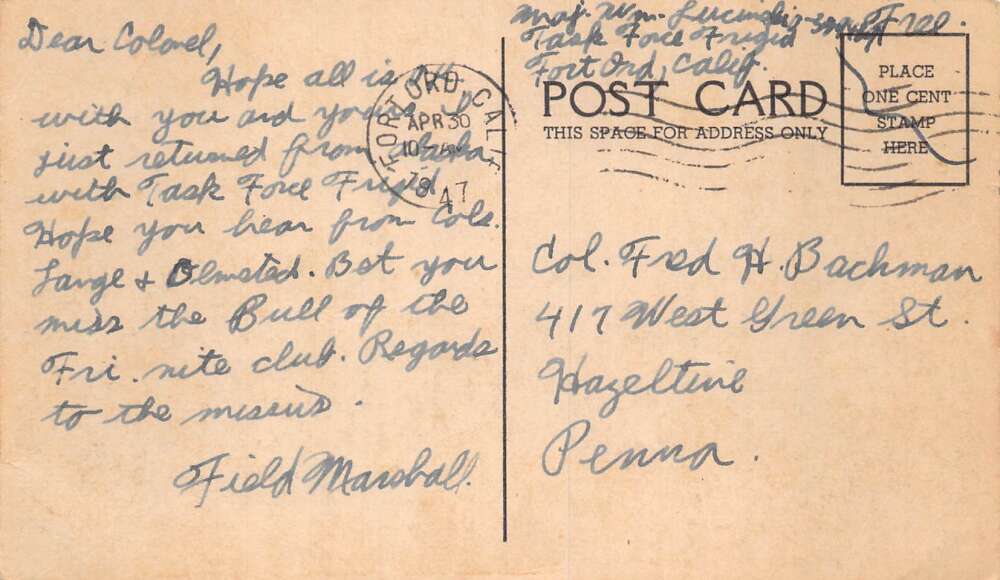 Dear Colonel,
Hope all is
with you and yours. I
just returned from Alaska
with Task Force Frigid
Hope you hear from Cols.
Lange & Olmsted. Bet you
miss the Bull of the
Fri. nite club. Regards
to the missus.
Field Marshall.
Maj. Wm.
Task Force Frigid
Fort Ord, Calif.
Free.
POST CARD
THIS SPACE FOR ADDRESS ONLY
PLACE
ONE CENT
STAMP
HERE
FORT ORD, CALIF
APR 30
10
47
Col. Fred H. Bachman
417 West Green St.
Hazeltine
Penna.